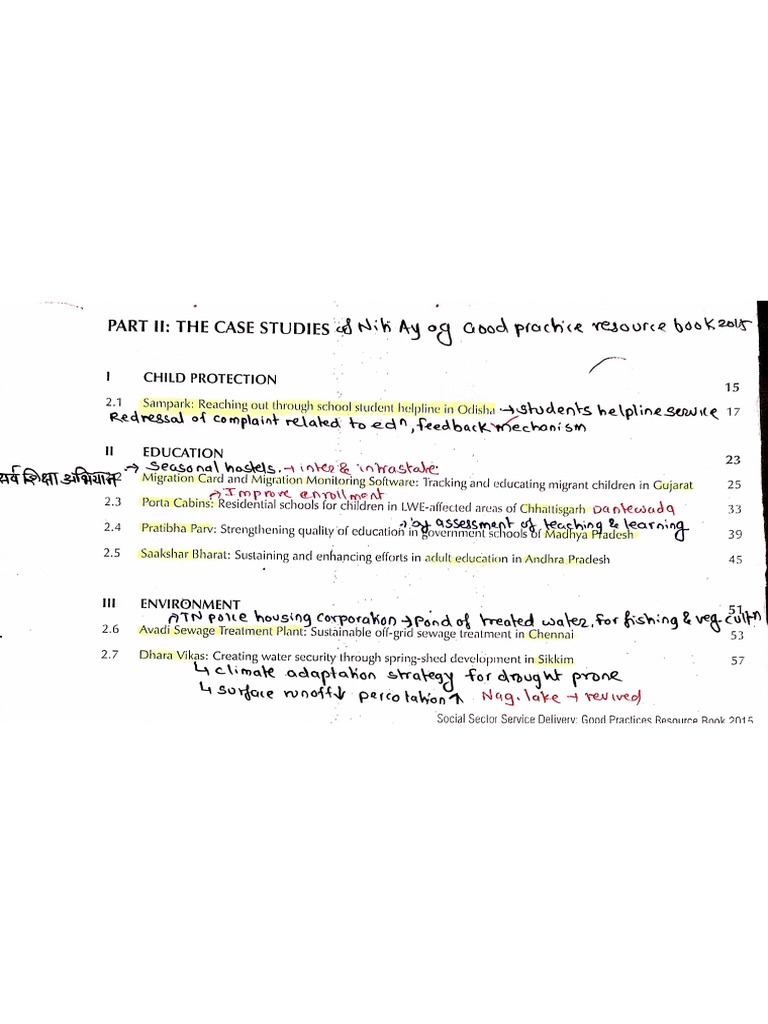 PART II: THE CASE STUDIES of Niti Ayog Good practice resource book 2015
I CHILD PROTECTION 15
2.1 Sampark: Reaching out through school student helpline in Odisha → students helpline service 17
Redressal of complaint related to edn, feedback mechanism
II EDUCATION 23
→ Seasonal hostels. → inter & intrastate.
सर्व शिक्षा अभियान 2 Migration Card and Migration Monitoring Software: Tracking and educating migrant children in Gujarat 25
→ Improve enrollment
2.3 Porta Cabins: Residential schools for children in LWE-affected areas of Chhattisgarh Dantewada 33
→ by assessment of teaching & learning
2.4 Pratibha Parv: Strengthening quality of education in government schools of Madhya Pradesh 39
2.5 Saakshar Bharat: Sustaining and enhancing efforts in adult education in Andhra Pradesh 45
III ENVIRONMENT 51
TN police housing corporation → Pond of treated water, for fishing & veg. cultn
2.6 Avadi Sewage Treatment Plant: Sustainable off-grid sewage treatment in Chennai 53
2.7 Dhara Vikas: Creating water security through spring-shed development in Sikkim 57
↳ climate adaptation strategy for drought prone
↳ surface runoff↓ percolation↑ Nag. lake → revived
Social Sector Service Delivery: Good Practices Resource Book 2015